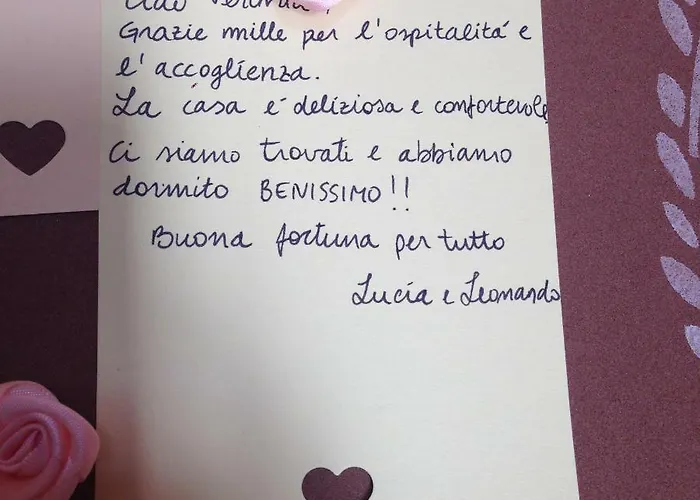 Ciao
Grazie mille per l'ospitalità e
l'accoglienza.
La casa é deliziosa e confortevole
Ci siamo trovati e abbiamo
dormito BENISSIMO!!
Buona fortuna per tutto
Lucia e Leonardo